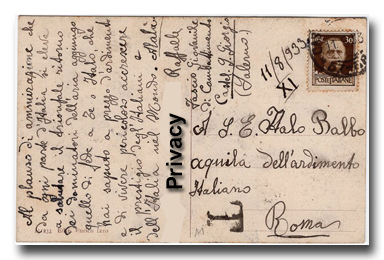 Al plauso di ammirazione che
da ogni parte d'Italia si eleva
a salutare il trionfale ritorno
dei dominatori dell'aria aggiungo
quello di
hai saputo a prezzo d'ardimento
e di valore accrescere
il prestigio degli Italiani e
dell'Italia nel Mondo.
Raffaele
Fascio Giovanile
di Combattimento
Castel S. Giorgio
(Salerno)
Privacy
11/8/933
XI
30
POSTE ITALIANE
A S. E. Italo Balbo
aquila dell'ardimento
Italiano
Roma
T